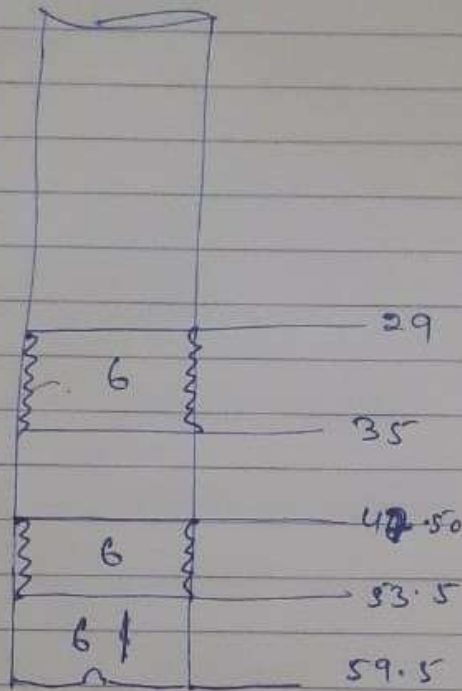 29
6
35
47.50
6
53.5
6
59.5